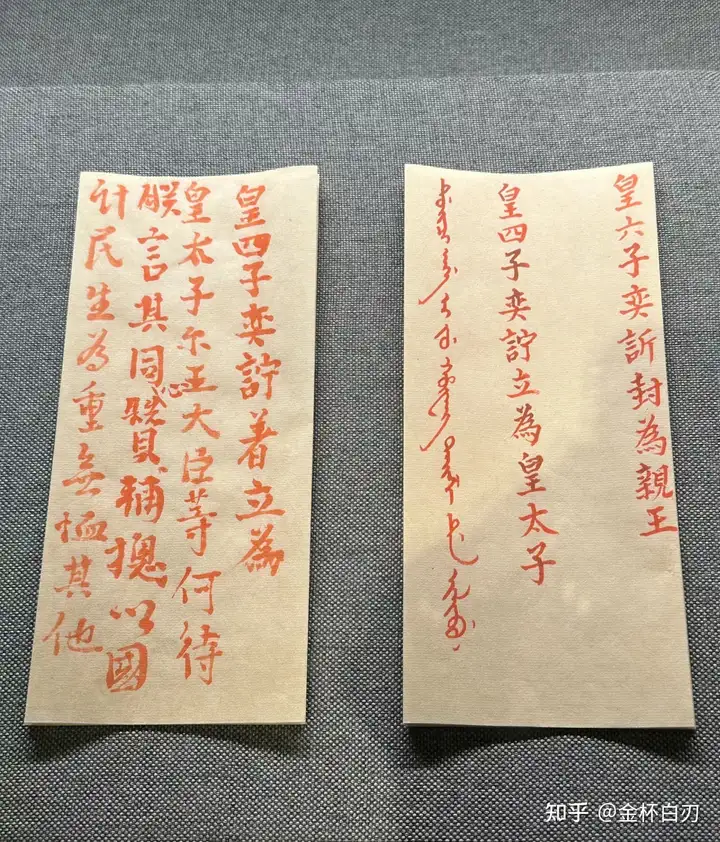 皇六子奕訢封為親王
皇四子奕詝立為皇太子
皇四子奕詝著立為
皇太子尔王大臣等何待
朕言其同心贊輔摠以國
計民生為重無恤其他
知乎 @金杯白刃